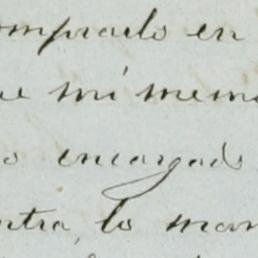 omprarlo en
ue mi memo
o encargado
ntra, lo man